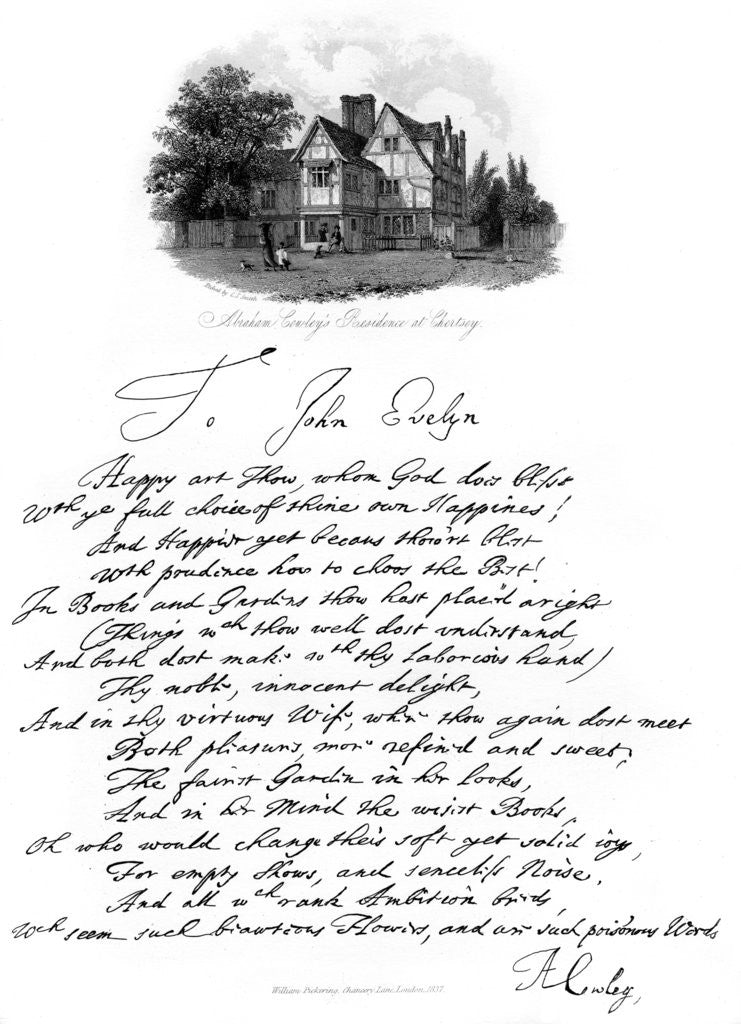 Etched by C. J. Smith
Abraham Cowley's Residence at Chertsey.
To John Evelyn
Happy art thow, whom God does bless
Wth ye full choice of thine own Happines!
And Happier yet becaus thow'rt blest
Wth prudence how to choos the Best!
In Books and Gardens thow hast plac'd aright
(Things wch thow well dost understand,
And both dost make wth thy laborious hand)
Thy noble, innocent delight,
And in thy virtuous Wife, where thow again dost meet
Both pleasures, more refined and sweet;
The fairest Garden in her Looks,
And in her Mind the wisest Books.
Oh who would change theis soft yet solid ioys,
For empty Shows, and senceless Noise,
And all wch rank Ambition breeds,
Wch seem such beawteous Flowers, and are such poisonous Weeds
ACowley,
William Pickering, Chancery Lane, London, 1837.